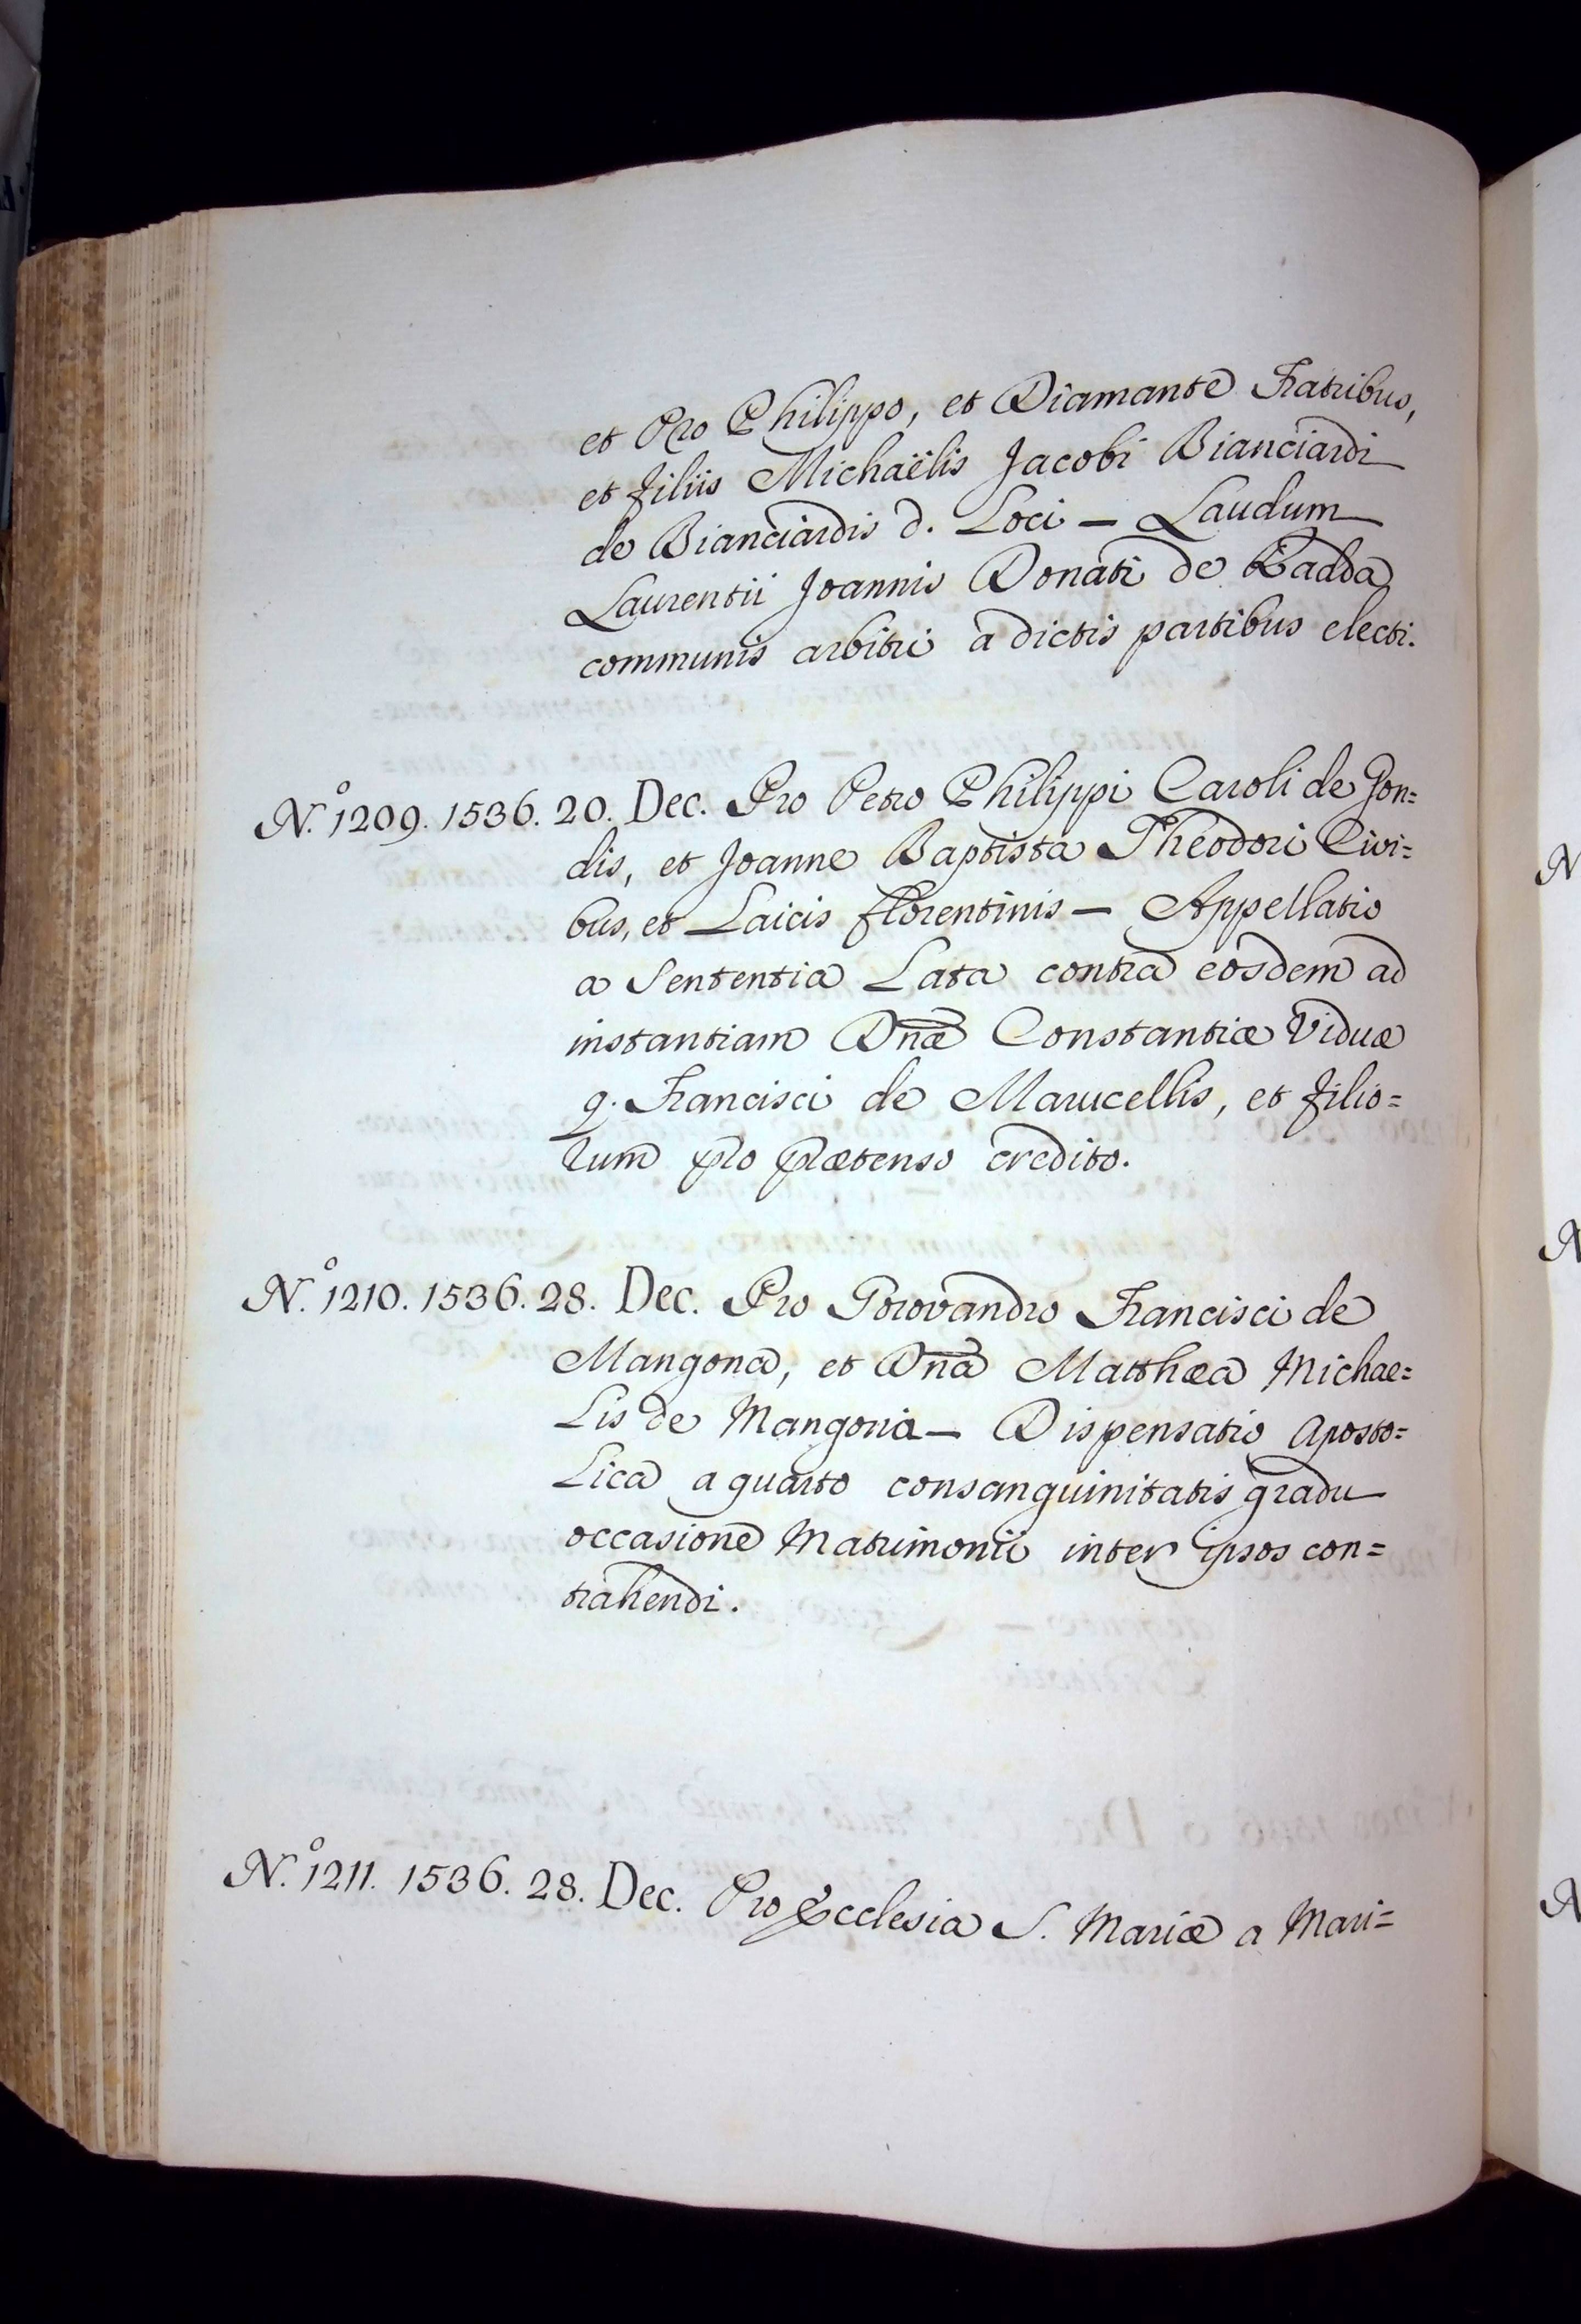 et Pro Philippo, et Diamante Fratribus,
et filiis Michaëlis Jacobi Bianciardi
de Bianciardis d. Loci — Laudum
Laurentii Joannis Donati de Radda
communis arbitri a dictis partibus electi.
N.º 1209. 1536. 20. Dec. Pro Petro Philippi Caroli de Gon=
dis, et Joanne Baptista Theodori Civi=
bus, et Laicis florentinis — Appellatio
a Sententia Lata contra eosdem ad
instantiam Dnæ Constantiæ Viduæ
q. Francisci de Marucellis, et filio=
rum pro prætenso credito.
N.º 1210. 1536. 28. Dec. Pro Porovandro Francisci de
Mangona, et Dna Matthæa Michae=
lis de Mangona — Dispensatio Aposto=
lica a quarto consanguinitatis gradu
occasione Matrimonii inter ipsos con=
trahendi.
N.º 1211. 1536. 28. Dec. Pro Ecclesia S. Mariæ a Mari=